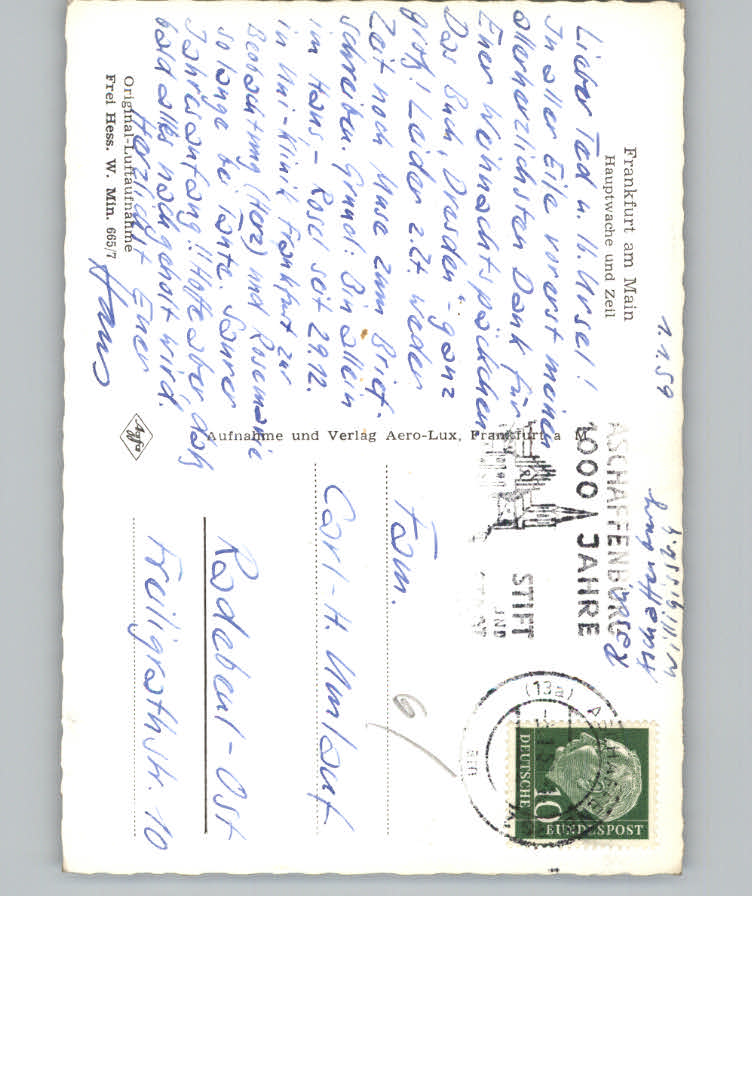 Frankfurt am Main
Hauptwache und Zeil
1.1.59
Lieber Ted u. lb. Ursel!
In aller Eile vorerst meinen
allerherzlichsten Dank für
Euer Weihnachtspäckchen
Das Buch „Dresden" ganz
groß! Leider z.Zt. weder
Zeit noch Muse zum Brief-
schreiben. Grund: Bin allein
im Haus – Rosel seit 29.12.
in Uni-Klinik Frankfurt zur
Beobachtung (Herz) und Rosemarie
solange bei Tante. Saurer
Jahresanfang!! Hoffe aber daß
bald alles nachgeholt wird.
Herzlichst Euer
Hans
Original-Luftaufnahme
Frei Hess. W. Min. 665/7
Agfa
Aufnahme und Verlag Aero-Lux, Frankfurt a M
ASCHAFFENBURG
1000 JAHRE
STIFT
UND
(13a)
DEUTSCHE
10
BUNDESPOST
Fam.
Carl-H. Umlauf
6
Radebeul-Ost
Freiligrathstr. 10